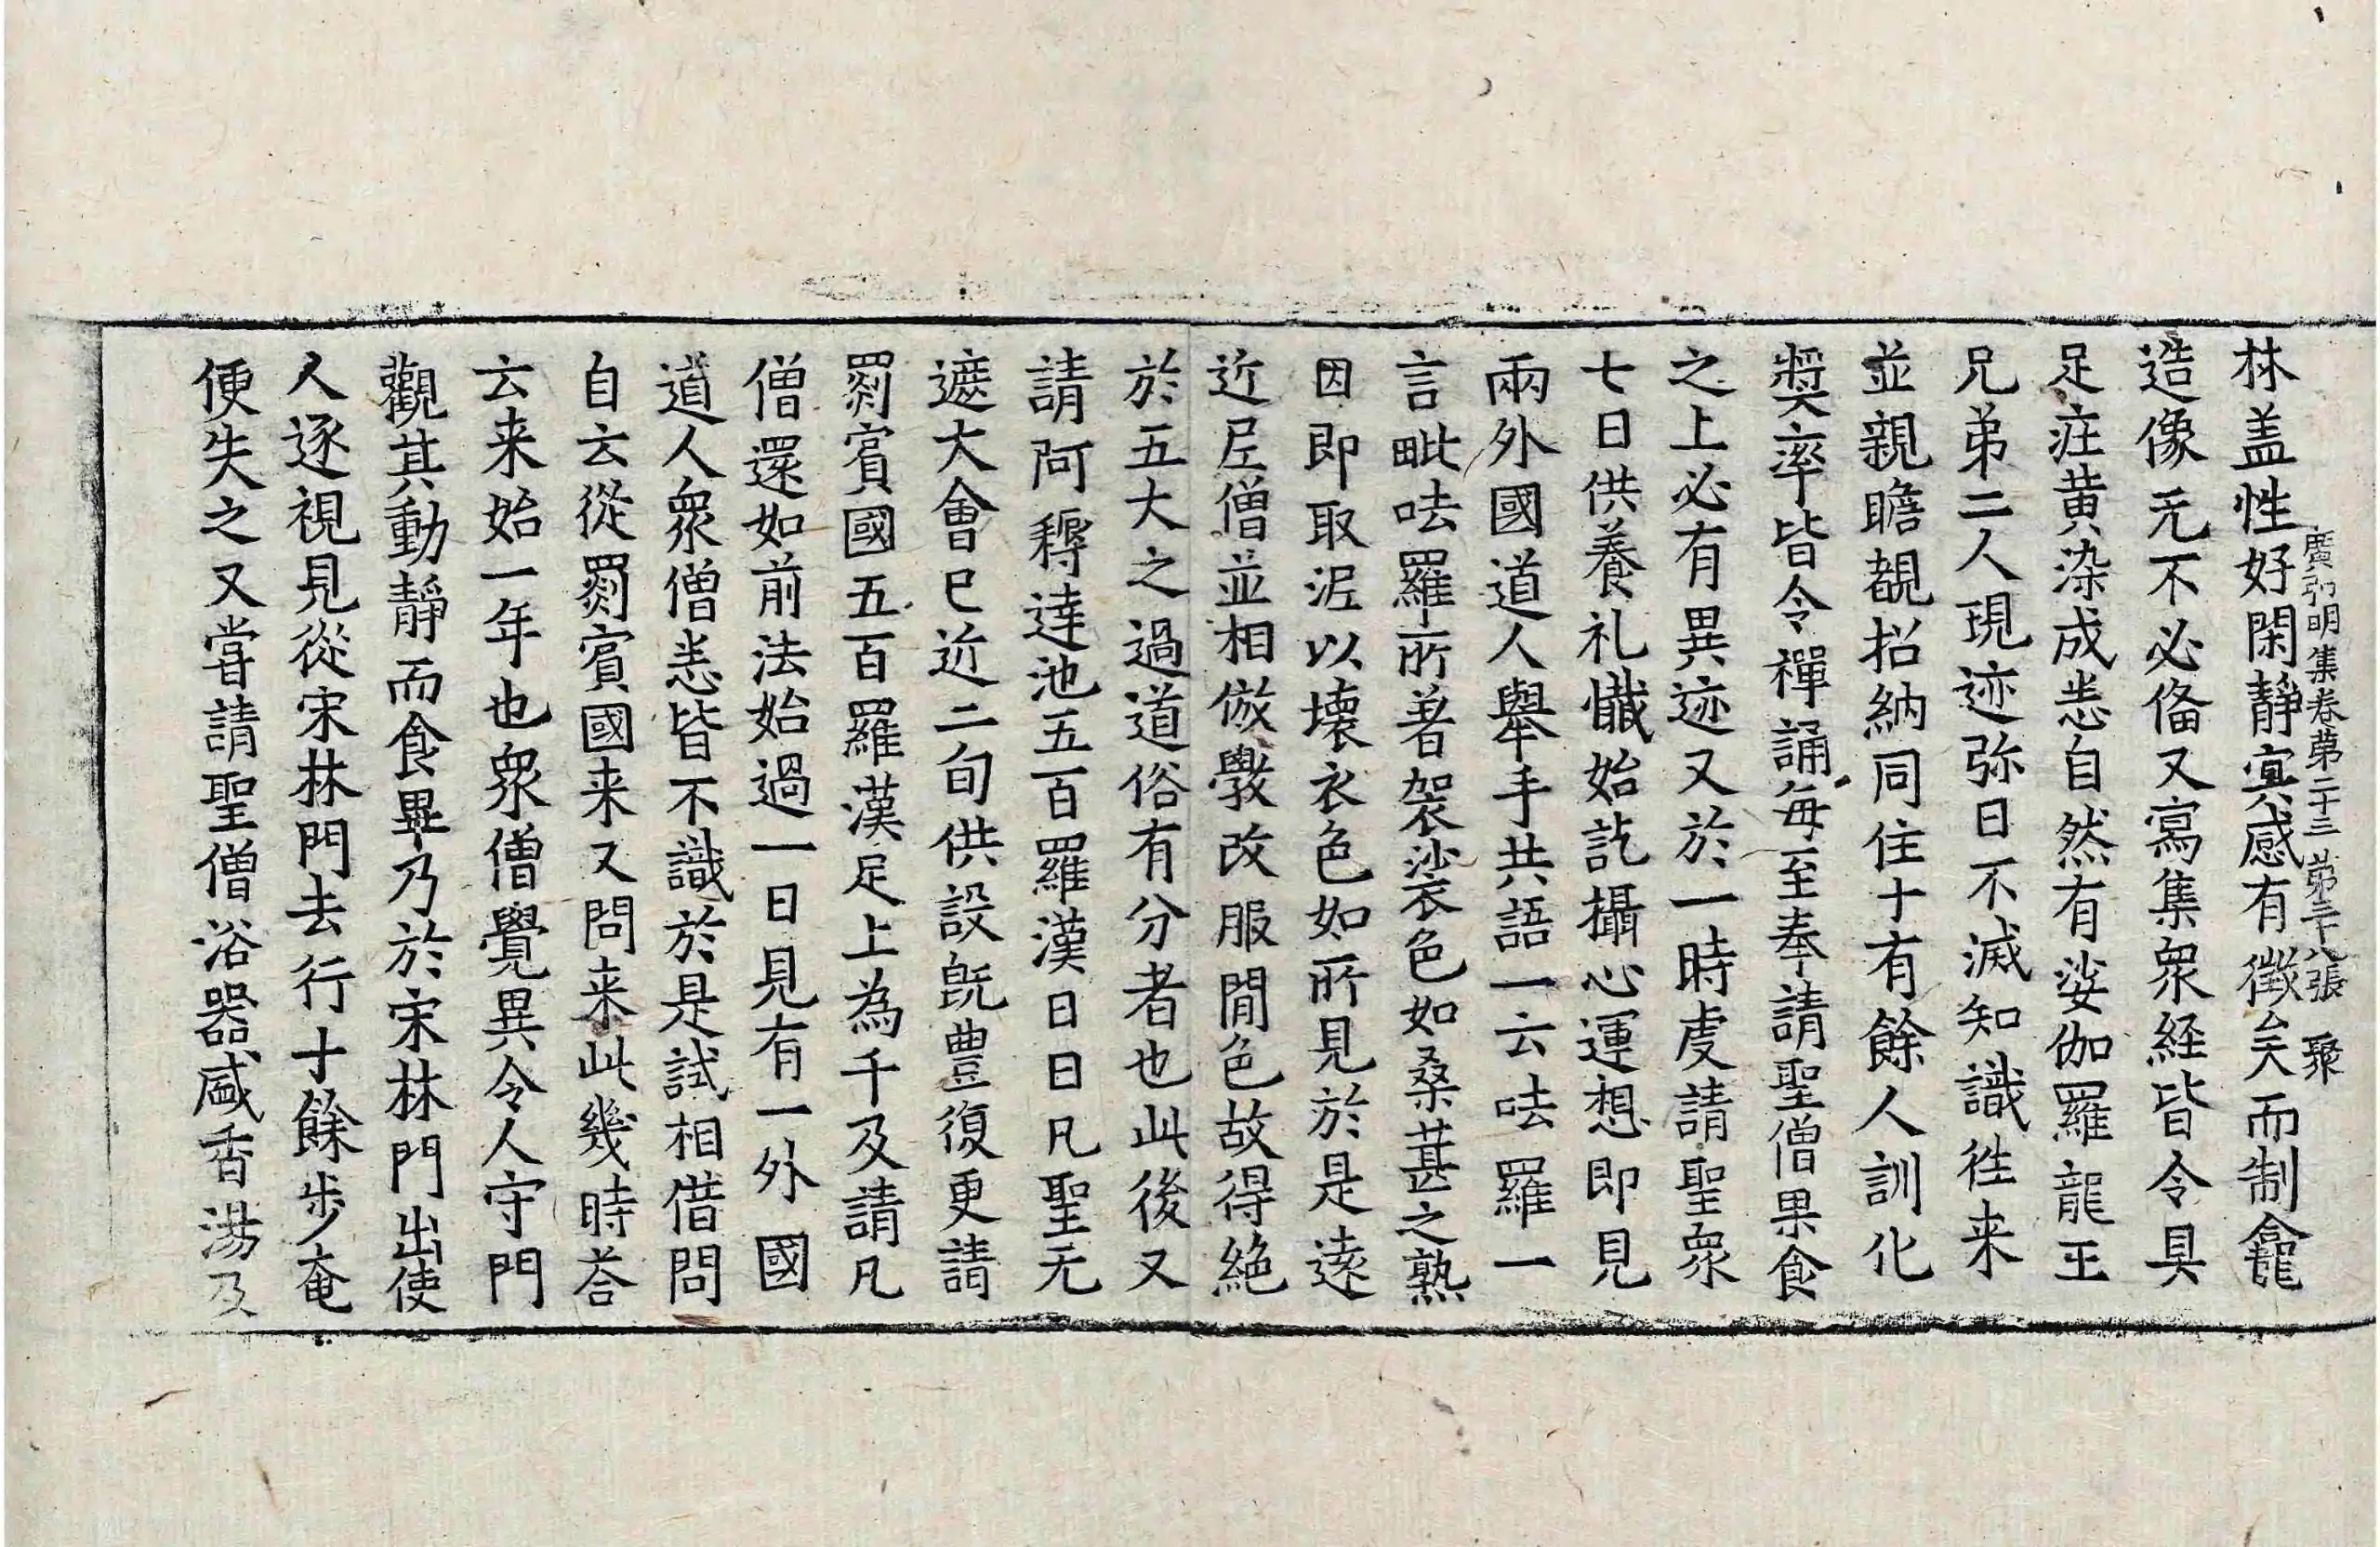 廣弘明集卷第二十三 第三十八張 聚
林盖性好閑靜寘感有徴矣而制龕
造像无不必俻又寫集衆経皆令具
足㽵黄染成恙自然有娑伽羅龍王
兄弟二人現迹弥日不滅知識徃来
並親瞻覩招納同住十有餘人訓化
獎率皆令禪誦每至奉請聖僧果食
之上必有異迹又於一時䖏請聖衆
七日供養礼懴始訖攝心運想即見
兩外國道人舉手共語一云呿羅一
言毗呿羅所著袈裟色如桑葚之熟
因即取泥以壊衣色如所見於是逺
近尼僧並相倣斆改服間色故得絶
於五大之過道俗有分者也此後又
請阿耨達池五百羅漢日日凡聖无
遮大會已近二旬供設旣豊復更請
罽賓國五百羅漢足上為千及請凡
僧還如前法始過一日見有一外國
道人衆僧恙皆不識於是試相借問
自云從罽賓國来又問来此幾時荅
云来始一年也衆僧覺異令人守門
觀其動靜而食畢乃於宋林門出使
人逐視見從宋林門去行十餘步奄
便失之又甞請聖僧浴器盛香湯及